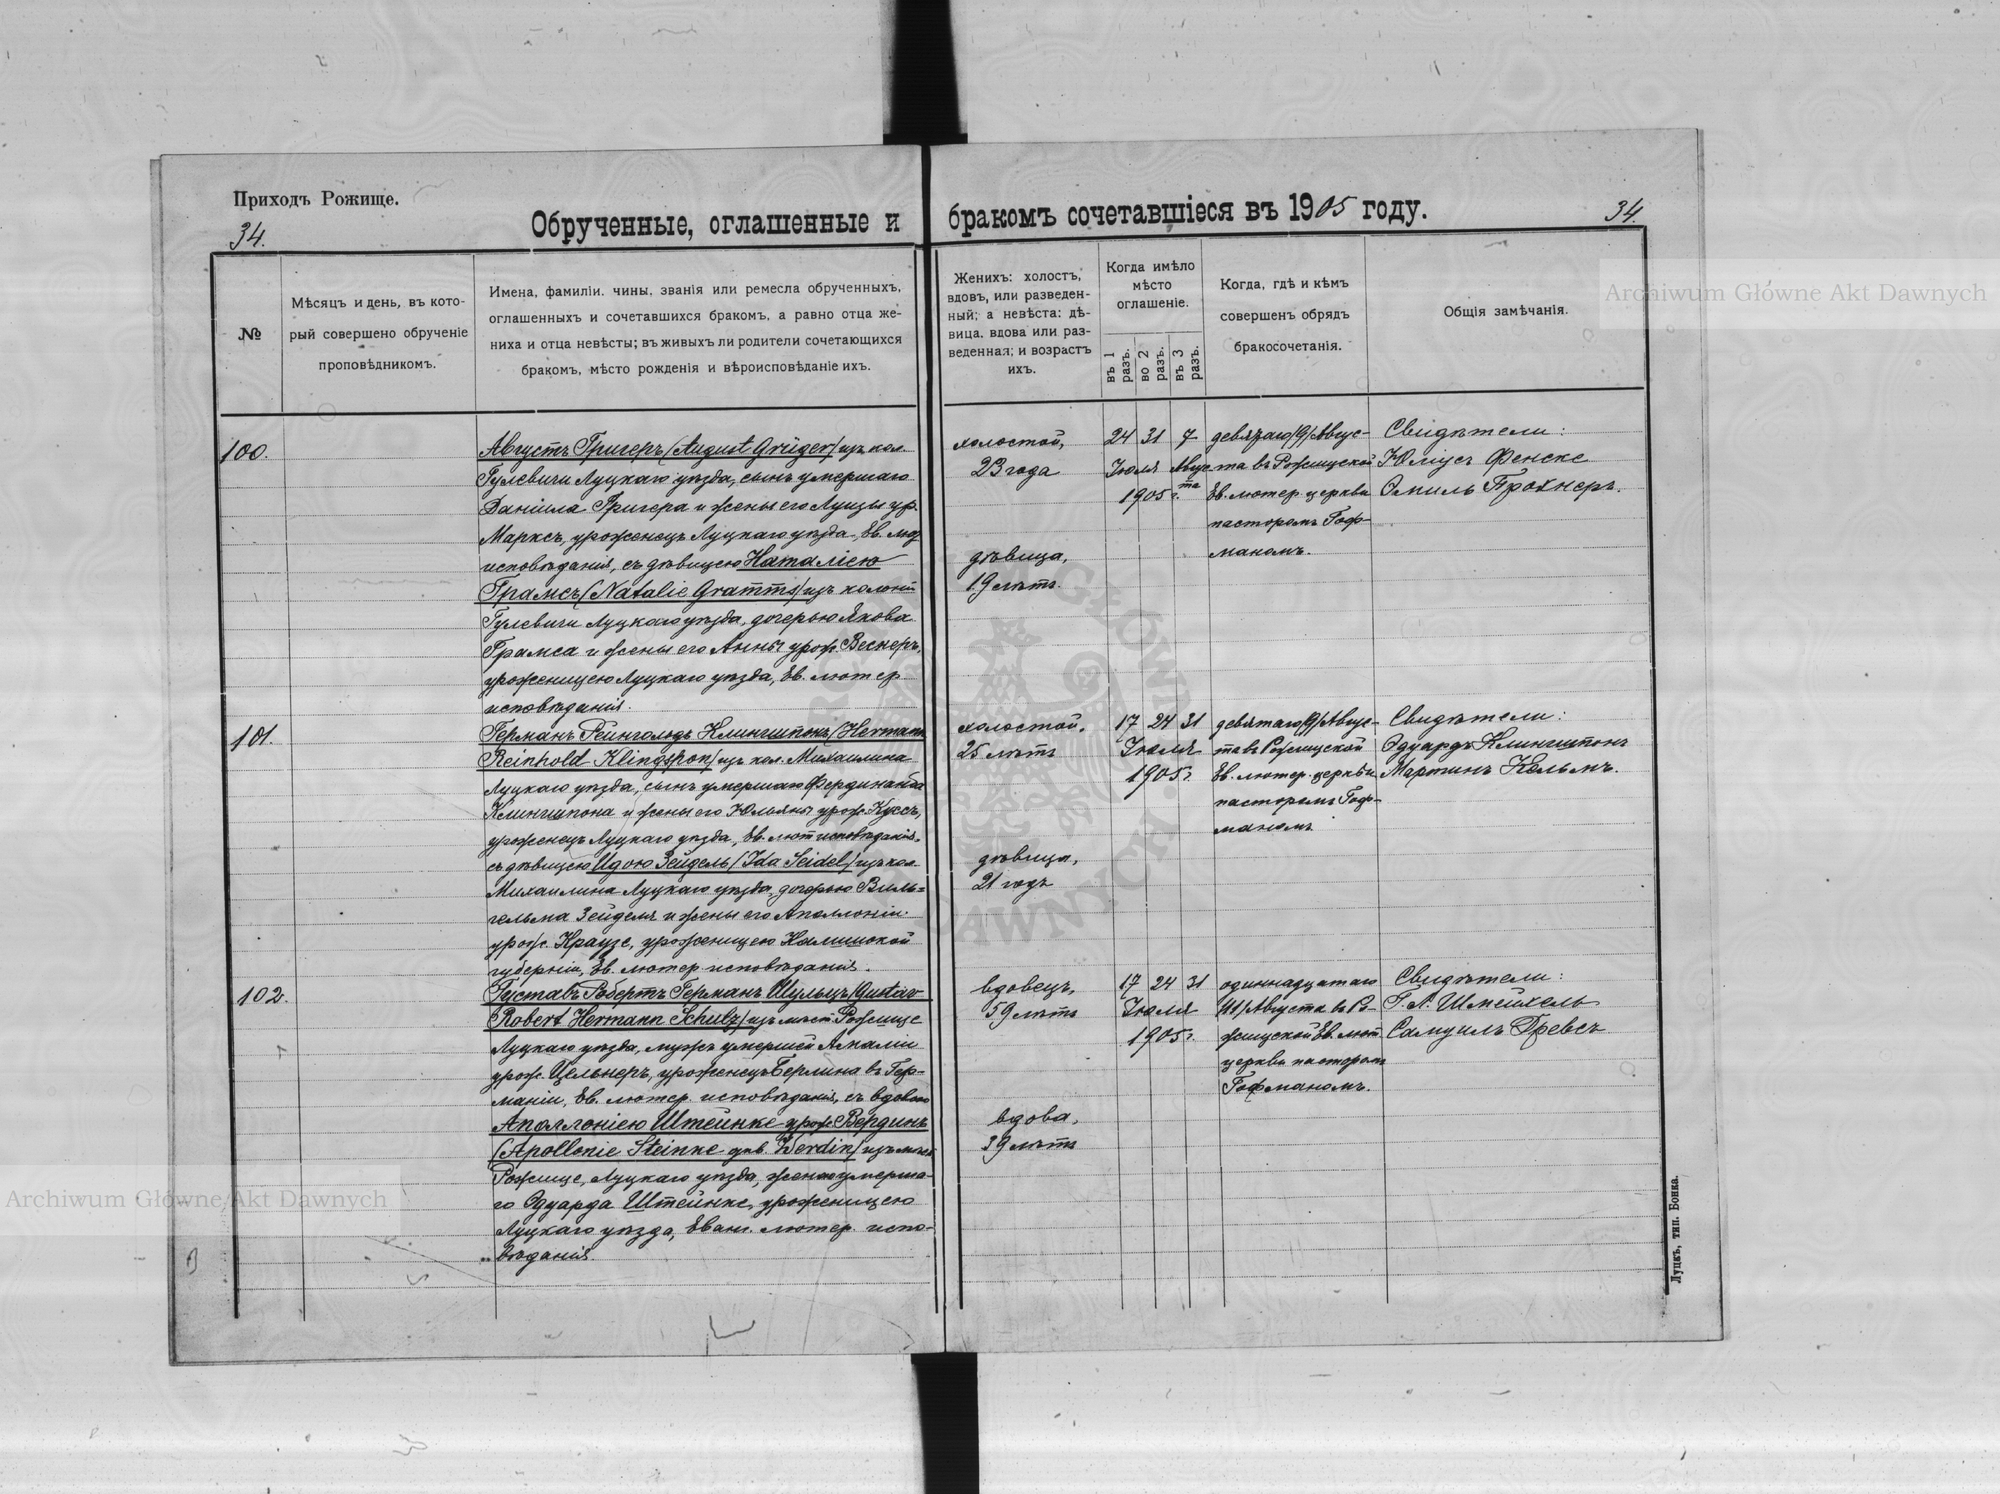 Приходъ Рожище.
34.
Обрученные, оглашенные и
бракомъ сочетавшіеся въ 1905 году.
34.
№
Мѣсяцъ и день, въ кото-
рый совершено обрученіе
проповѣдникомъ.
Имена, фамиліи, чины, званія или ремесла обрученныхъ,
оглашенныхъ и сочетавшихся бракомъ, а равно отца же-
ниха и отца невѣсты; въ живыхъ ли родители сочетающихся
бракомъ, мѣсто рожденія и вѣроисповѣданіе ихъ.
Женихъ: холостъ,
вдовъ, или разведен-
ный; а невѣста: дѣ-
вица, вдова или раз-
веденная; и возрастъ
ихъ.
Когда имѣло
мѣсто
оглашеніе.
въ 1 разъ.
во 2 разъ.
въ 3 разъ.
Когда, гдѣ и кѣмъ
совершенъ обрядъ
бракосочетанія.
Общія замѣчанія.
100.
Августъ Григеръ /August Grüger/ изъ кол.
Гулевичи Луцкаго уѣзда, сынъ умершаго
Даніила Григера и жены его Луизы ур.
Марксъ, уроженецъ Луцкаго уѣзда, Ев. лют.
исповѣданія, съ дѣвицею Наталіею
Грамсъ /Natalie Gramms/ изъ колоніи
Гулевичи Луцкаго уѣзда, дочерью Якова
Грамса и жены его Анны урож. Веснеръ,
уроженицею Луцкаго уѣзда, Ев. лютер
исповѣданія.
холостой,
23 года
дѣвица,
19 лѣтъ.
24 31 7
Іюля Авгу-
ста
1905 г.
девятаго /9/ Авгус-
та въ Рожищской
Ев. лютер. церкви
пасторомъ Гоф-
маномъ.
Свидѣтели:
Юліусъ Фенске
Эмиль Прохнеръ.
101.
Германъ Рейнгольдъ Клингшпонъ /Hermann
Reinhold Klingspon/ изъ кол. Михаилина
Луцкаго уѣзда, сынъ умершаго Фердинанда
Клингшпона и жены его Юльяны урож. Куссъ,
уроженецъ Луцкаго уѣзда, Ев. лют исповѣданія,
съ дѣвицею Идою Зейдель /Ida Seidel/ изъ кол.
Михаилина Луцкаго уѣзда, дочерью Виль=
гельма Зейделя и жены его Аполлоніи
урож. Краузе, уроженицею Калишской
губерніи, Ев. лютер. исповѣданія.
холостой,
25 лѣтъ
дѣвица,
21 годъ
17 24 31
Іюля
1905 г.
девятаго /9/ Авгус-
та въ Рожищской
Ев. лютер. церкви
пасторомъ Гоф-
маномъ
Свидѣтели:
Эдуардъ Клингшпонъ
Мартинъ Кельмъ.
102.
Густавъ Робертъ Германъ Шульцъ /Gustav
Robert Hermann Schulz/ изъ мѣст. Рожище
Луцкаго уѣзда, мужъ умершей Амаліи
урож. Цельнеръ, уроженецъ Берлина въ Гер-
маніи, Ев. лютер. исповѣданія, съ вдовою
Аполлоніею Штейнке урож. Вердинъ
/Apollonie Steinke geb. Werdin/ изъ мѣст.
Рожище, Луцкаго уѣзда, женою умерша-
го Эдуарда Штейнке, уроженицею
Луцкаго уѣзда, Еванг. лютер. испо-
вѣданія.
вдовецъ,
59 лѣтъ
вдова,
39 лѣтъ
17 24 31
Іюля
1905 г.
одиннадцатаго
/11/ Августа въ Ро-
жищской Ев. лют.
церкви пасторомъ
Гофманомъ.
Свидѣтели:
Г. А. Шмейхель
Самуилъ Гревсъ
Луцкъ, тип. Бонка.
Archiwum Główne Akt Dawnych
Archiwum Główne Akt Dawnych